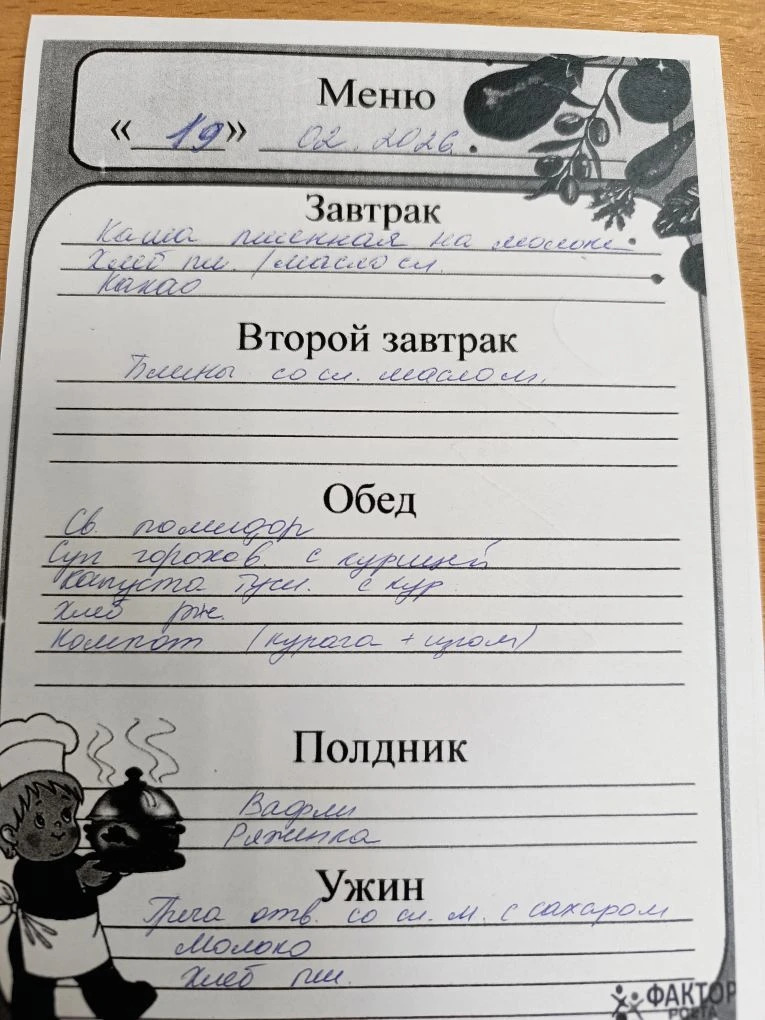 Меню
« 19 » 02. 2026.
Завтрак
Каша пшенная на молоке
Хлеб пш. / масло сл.
Какао
Второй завтрак
Блины со сл. маслом.
Обед
Св. помидор
Суп горохов. с курицей
Капуста туш. с кур.
Хлеб рж.
Компот (курага + изюм)
Полдник
Вафли
Ряженка
Ужин
Греча отв. со сл. м. с сахаром
Молоко
Хлеб пш.
ФАКТОР
РОСТА